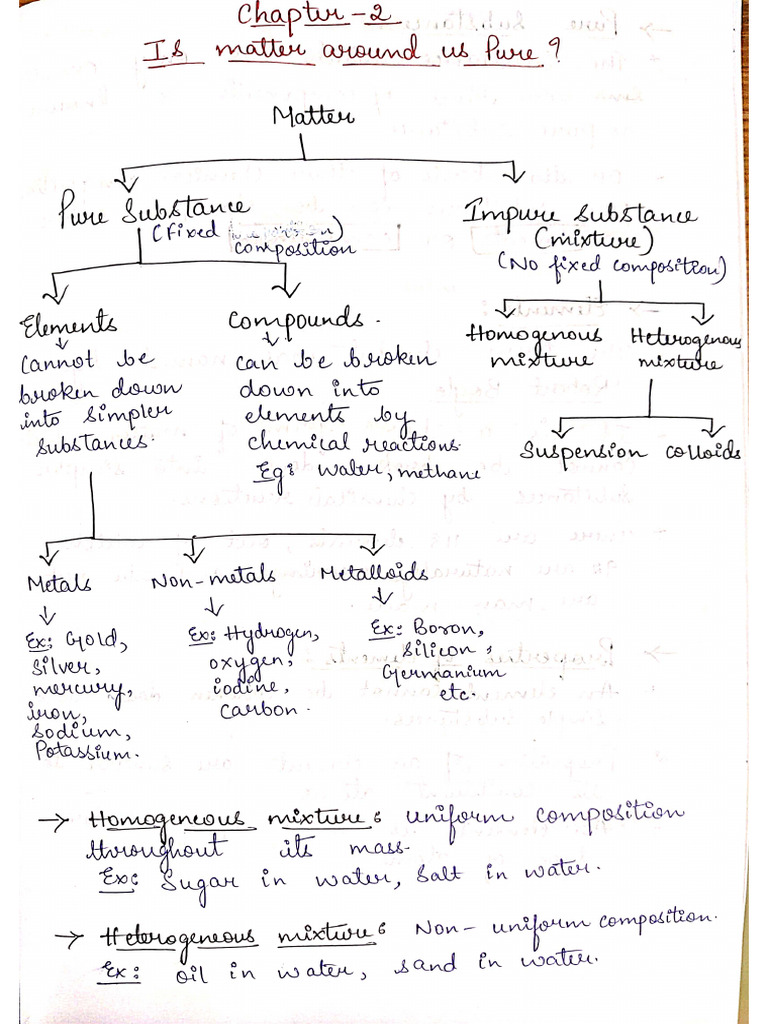 Chapter-2
Is matter around us Pure?
Matter
Pure Substance
(fixed
composition
Impure Substance
(mixture)
(No fixed composition)
Elements
cannot be
broken down
into simpler
substances.
Compounds.
can be broken
down into
elements by
chemical reactions.
Eg: water, methane
Homogenous
mixture
Heterogenous
mixture
Suspension
colloids
Metals
Ex: Gold,
silver,
mercury,
iron,
sodium,
Potassium.
Non-metals
Ex: Hydrogen,
oxygen,
iodine,
carbon.
Metalloids
Ex: Boron,
silicon,
Germanium
etc.
→ Homogeneous mixture: uniform composition
throughout its mass.
Ex: Sugar in water, Salt in water.
→ Heterogeneous mixture: Non-uniform composition.
Ex: oil in water, sand in water.